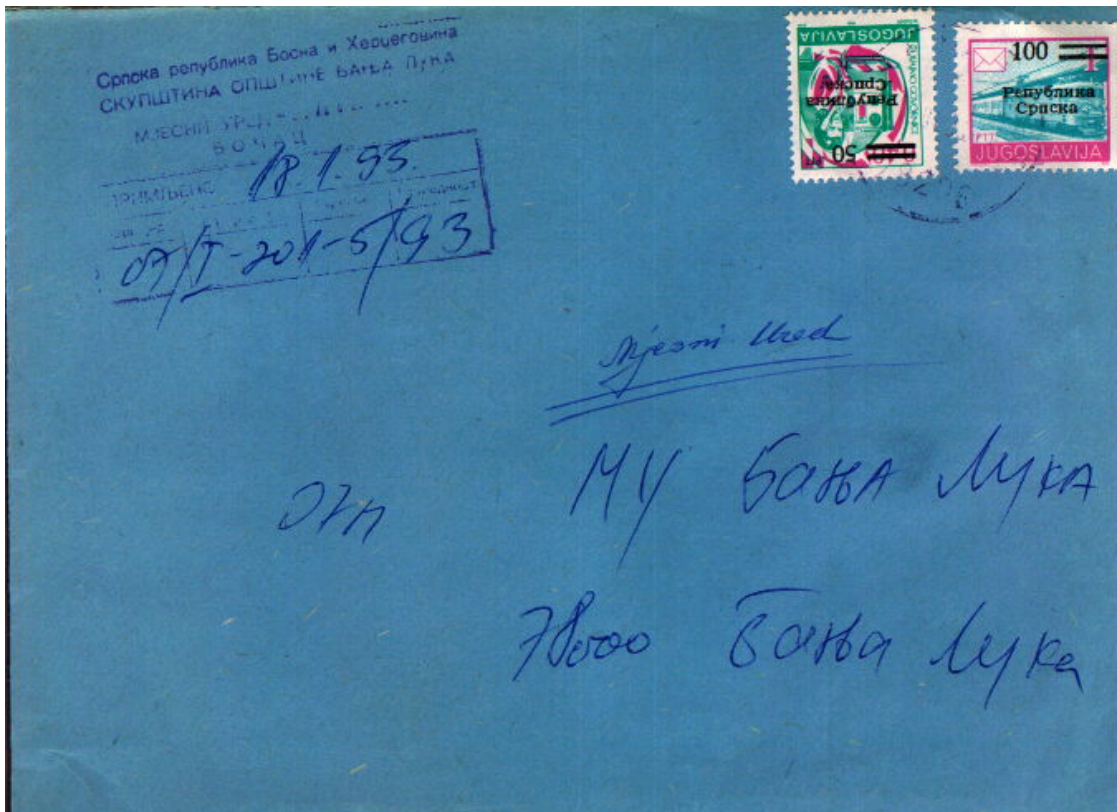 Српска република Босна и Херцеговина
СКУПШТИНА ОПШТИНЕ БАЊА ЛУКА
МЈЕСНИ УРЕД
БОЧАЦ
ПРИМЉЕНО 18.1.93.
07/T-201-5/93
JUGOSLAVIJA
Република
Српска
50
100
Република
Српска
PTT
JUGOSLAVIJA
Mjesni Ured
МУ БАЊА ЛУКА
78000 Бања Лука